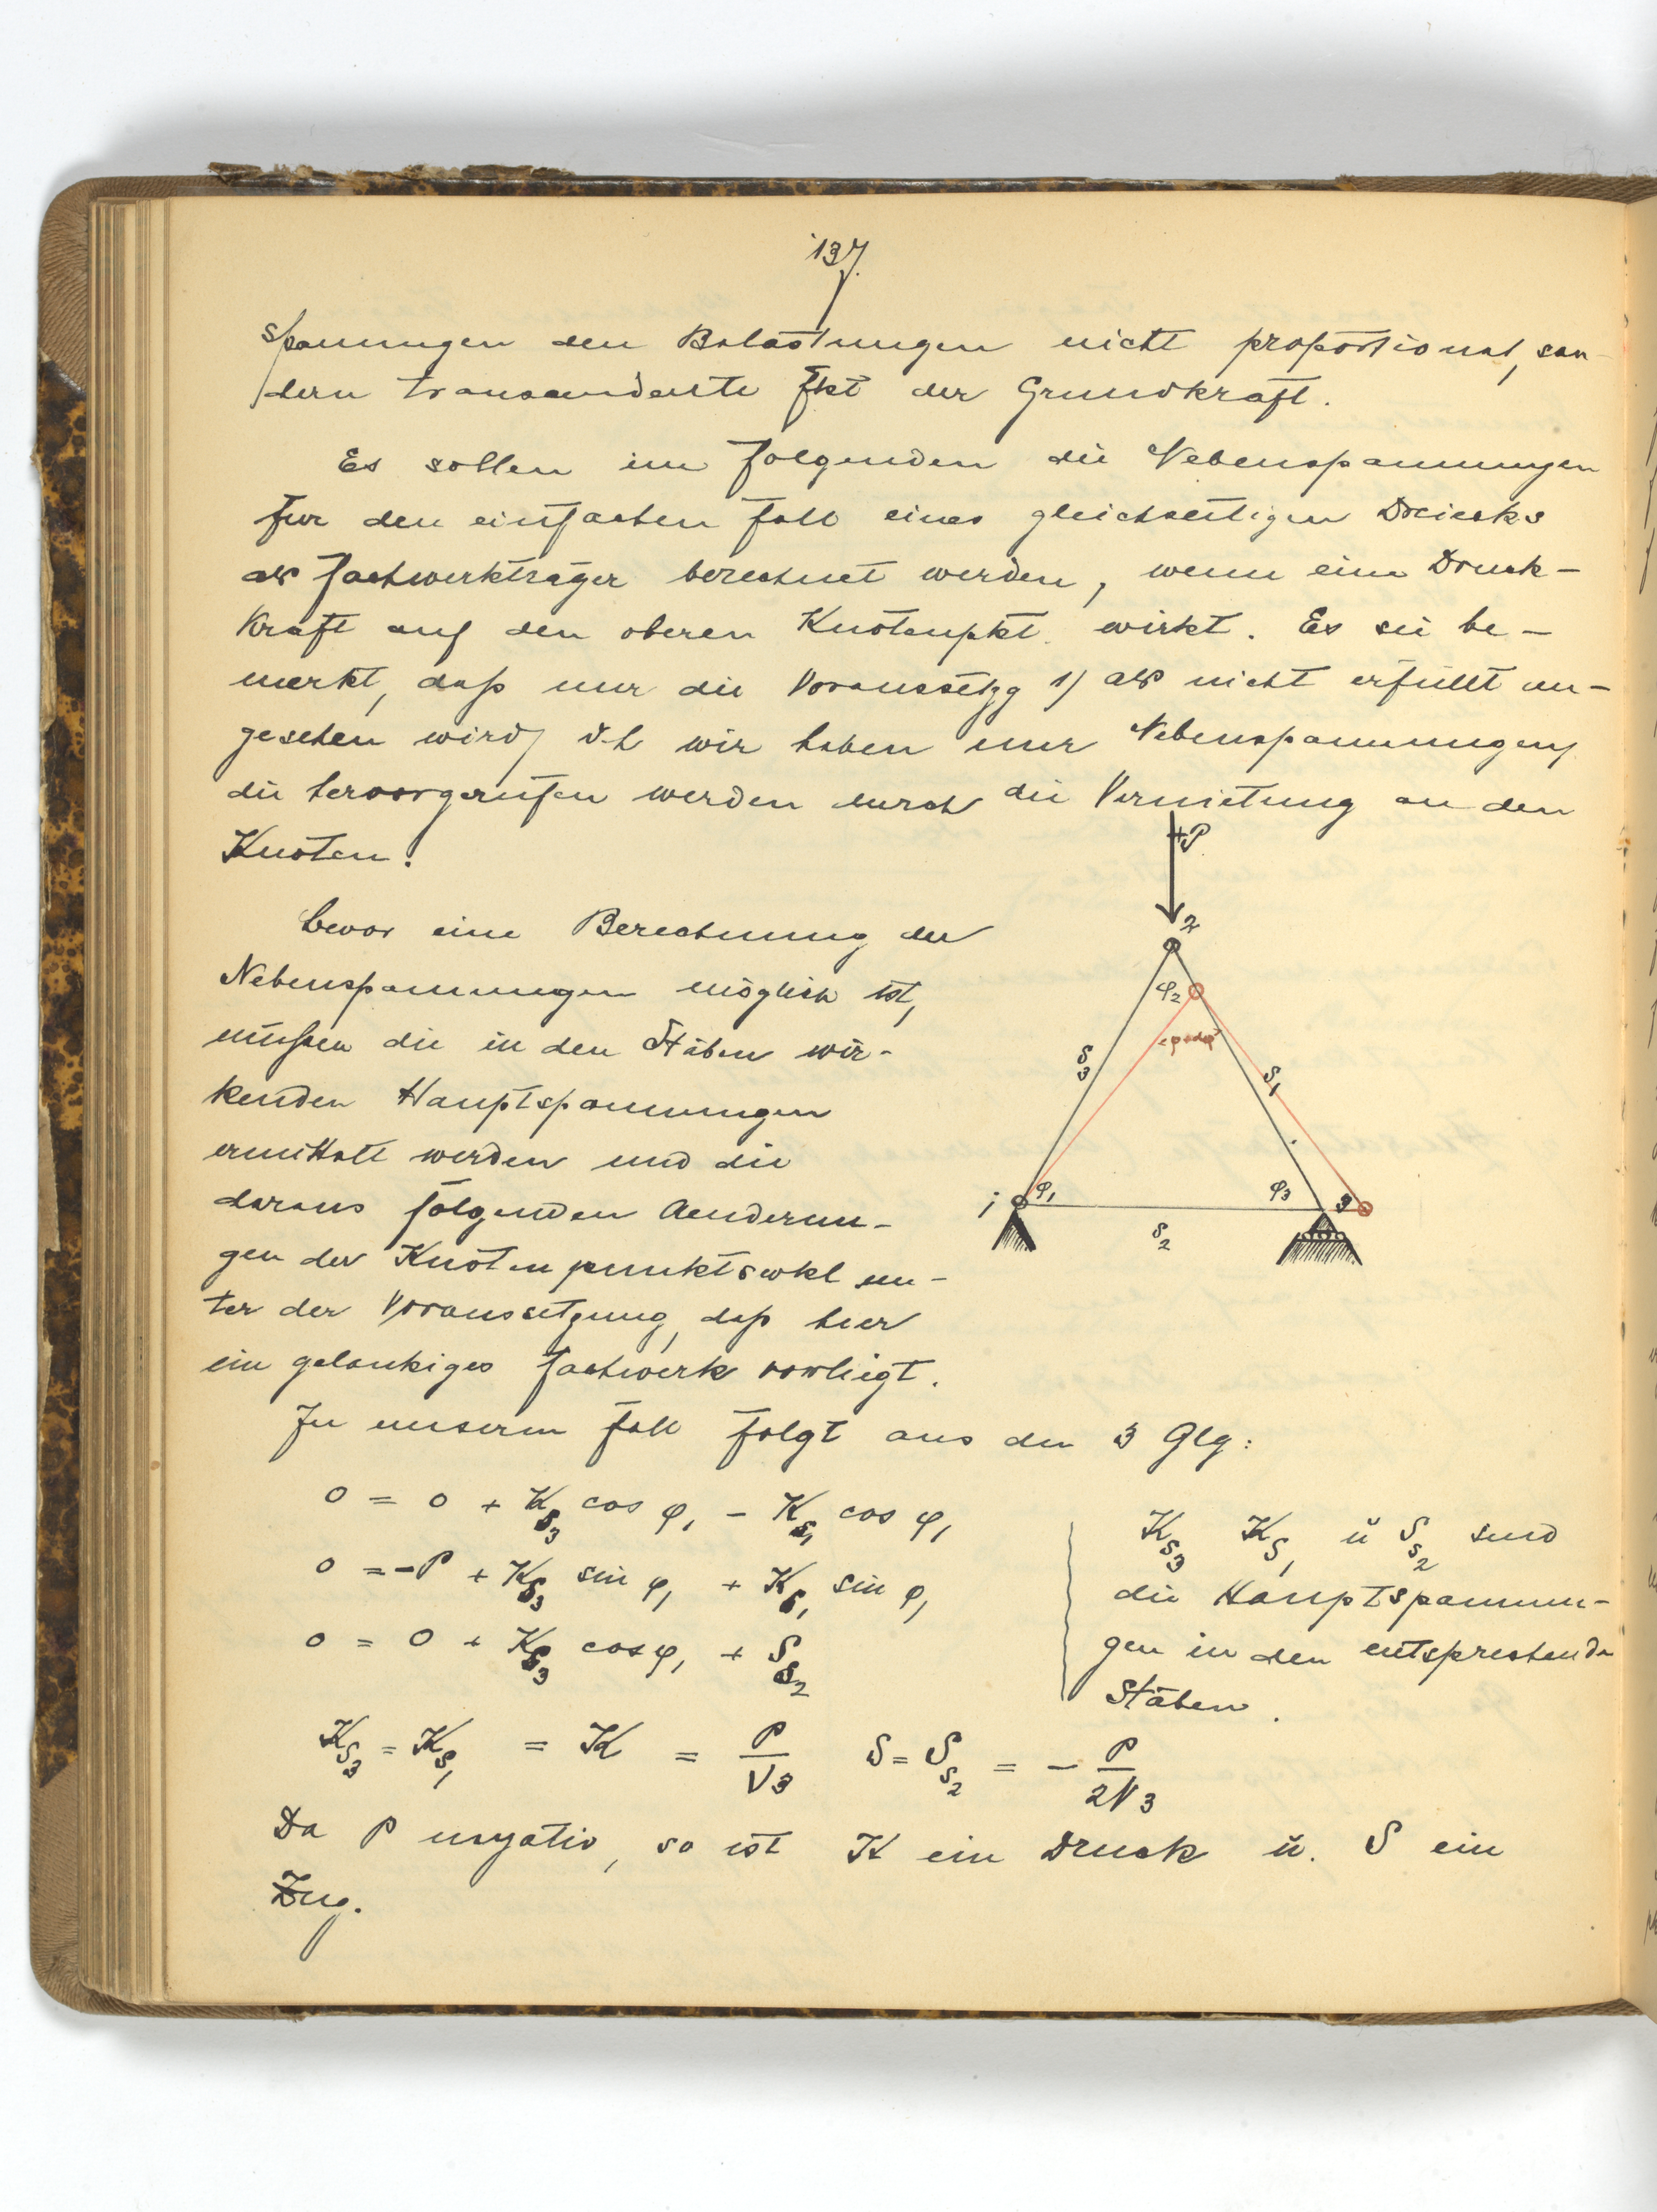 137.
spannungen den Belastungen nicht proportional, son-
dern transcendente Fkt der Grundkraft.
Es sollen im folgenden die Nebenspannungen
für den einfachen Fall eines gleichseitigen Dreiecks
als Fachwerkträger berechnet werden, wenn eine Druck-
kraft auf den oberen Knotenpkt. wirkt. Es sei be-
merkt, daß nur die Voraussetzg 1) als nicht erfüllt an-
gesehen wird, d.h wir haben nur Nebenspannungen,
die hervorgerufen werden durch die Vernietung an den
Knoten.
+P
2
φ2
S3
S1
1
φ1
φ3
3
S2
Bevor eine Berechnung der
Nebenspannungen möglich ist,
müssen die in den Stäben wir-
kenden Hauptspannungen
ermittelt werden und die
daraus folgenden Aenderun-
gen der Knotenpunktswkl un-
ter der Voraussetzung, daß hier
ein gelenkiges Fachwerk vorliegt.
In unserm Fall folgt aus den 3 Glg:
0 = 0 + K_{S3} cos φ1 - K_{S1} cos φ1
0 = -P + K_{S3} sin φ1 + K_{S1} sin φ1
0 = 0 + K_{S3} cos φ1 + S_{S2}
K_{S3} K_{S1} ŭ S_{S2} sind
die Hauptspannun-
gen in den entsprechenden
Stäben.
K_{S3} = K_{S1} = K = P/√3 S = S_{S2} = - P/2√3
Da P negativ, so ist K ein Druck ŭ. S ein
Zug.